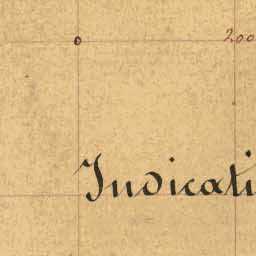 0 200
Indicati